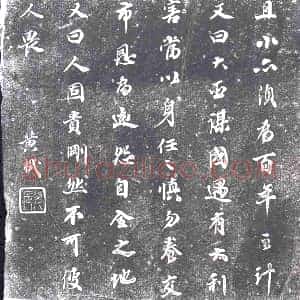 且小亦須為百年之計
又曰大臣謀國遇有大利
害當以身任慎勿養交
市恩為遠怨自全之地
又曰人固貴剛然不可使
人畏
黄